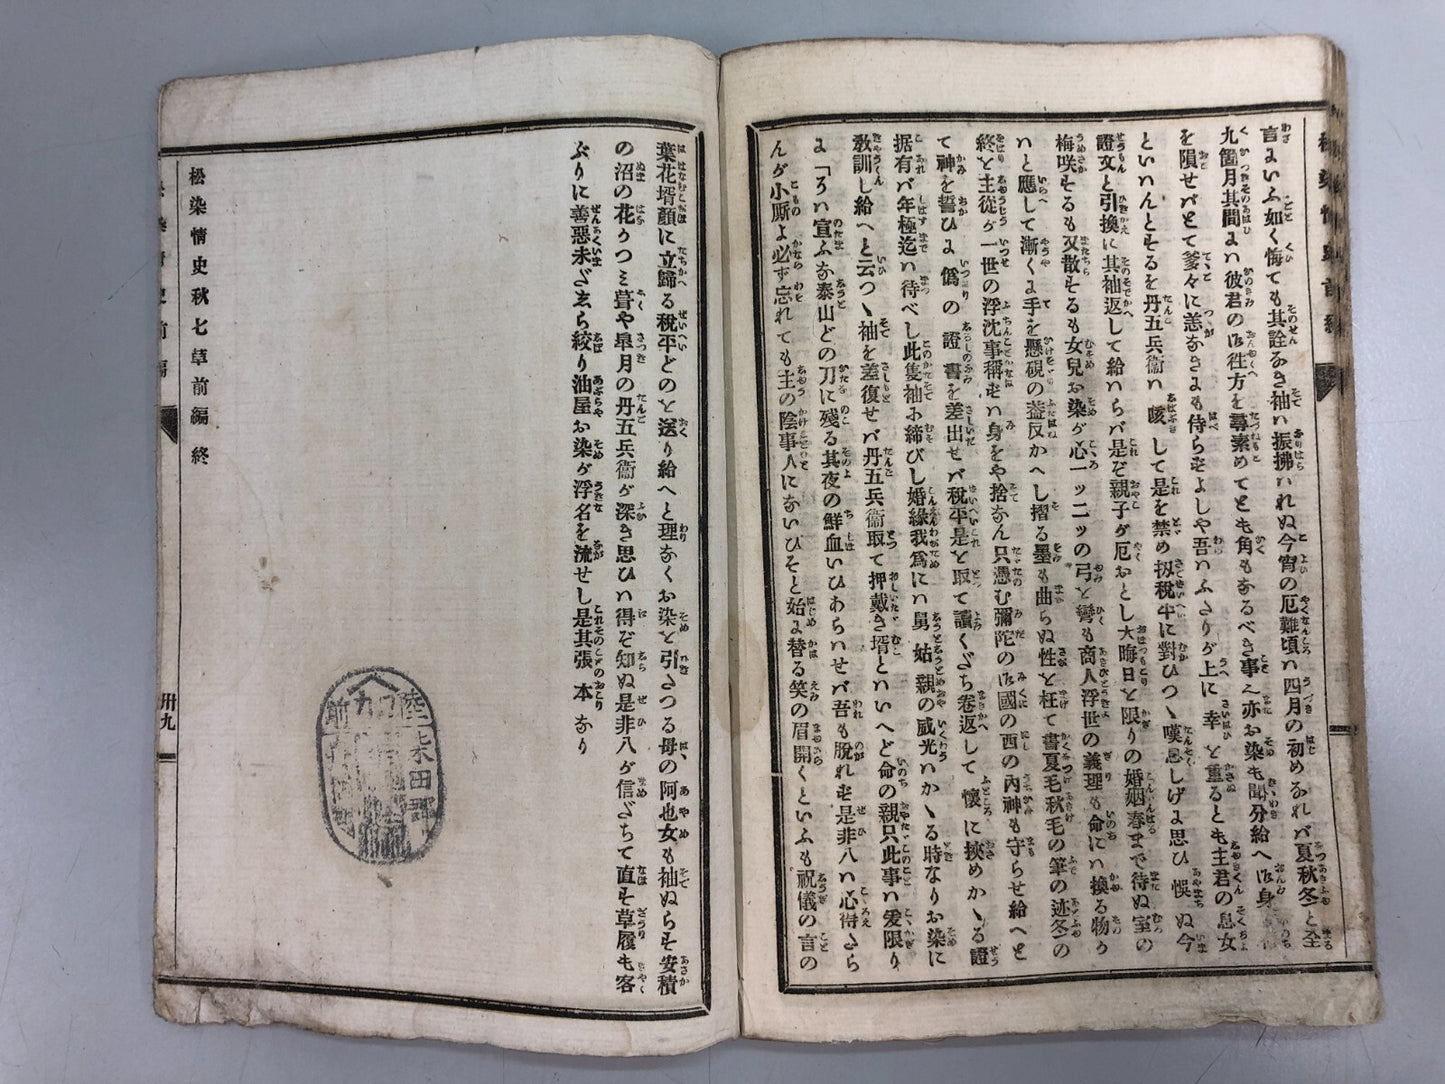 言にいふ如く悔ても其詮なき袖ハ振拂ハれぬ今宵の厄難頃ハ四月の初めなれバ夏秋冬と全
九箇月其間に彼君の御徃方を尋索めてとも角もなるべき事ん亦お染も聞分給へ御身
を隕せバとて爹々に恙なきにも侍らずよしや吾ハふたりが上に幸と重るとも主君の息女
といハんとするを丹五兵衞ハ咳して是を禁め扨税平に對ひつゝ嘆息しげに思ひ悞ぬ今
證文と引換に其袖返して給ハらバ是ぞ親子が厄おとし大晦日と限りの婚姻春まで待ぬ室の
梅咲するも又散するも女兒お染が心一ッ二ッの弓と彎も商人浮世の義理も命にハ換る物か
ハと應して漸くに手を懸硯の葢反かへし摺る墨も曲らぬ性と枉て書夏毛秋毛の筆の迹冬の
終と主從が一世の浮沈事稱ずハ身をや捨なん只憑む彌陀の御國の西の内神も守らせ給へと
て神を誓ひに僞の證書を差出せバ税平是と取て讀くだち卷返して懷に挾めかゝる證
据有バ年極迄ハ待べし此隻袖お締びし婚緣我爲にハ舅姑親の威光ハかゝる時なりお染に
敎訓し給へと云つゝ袖を差復せバ丹五兵衞取て押戴き壻といハいへど命の親只此事ハ爰限り
に「ろハ宣ふな泰山どの刀に殘る其夜の鮮血いひあらハせバ吾も脫れず是非八ハ心得たら
んが小厮よ必ず忘れても主の陰事人にないひそと始に替る笑の眉開くといふも祝儀の言の
葉花壻顏に立歸る税平どのと送り給へと理なくお染と引たつる母の阿也女も袖ぬらす安積
の沼の花かつミ葺や皐月の丹五兵衞が深き思ひハ得ぞ知ぬ是非八が信だちて直す草履も客
ぶりに善惡未だゑら絞り油屋お染が浮名を流せし是其張本なり
松染情史秋七草前編終
卅九